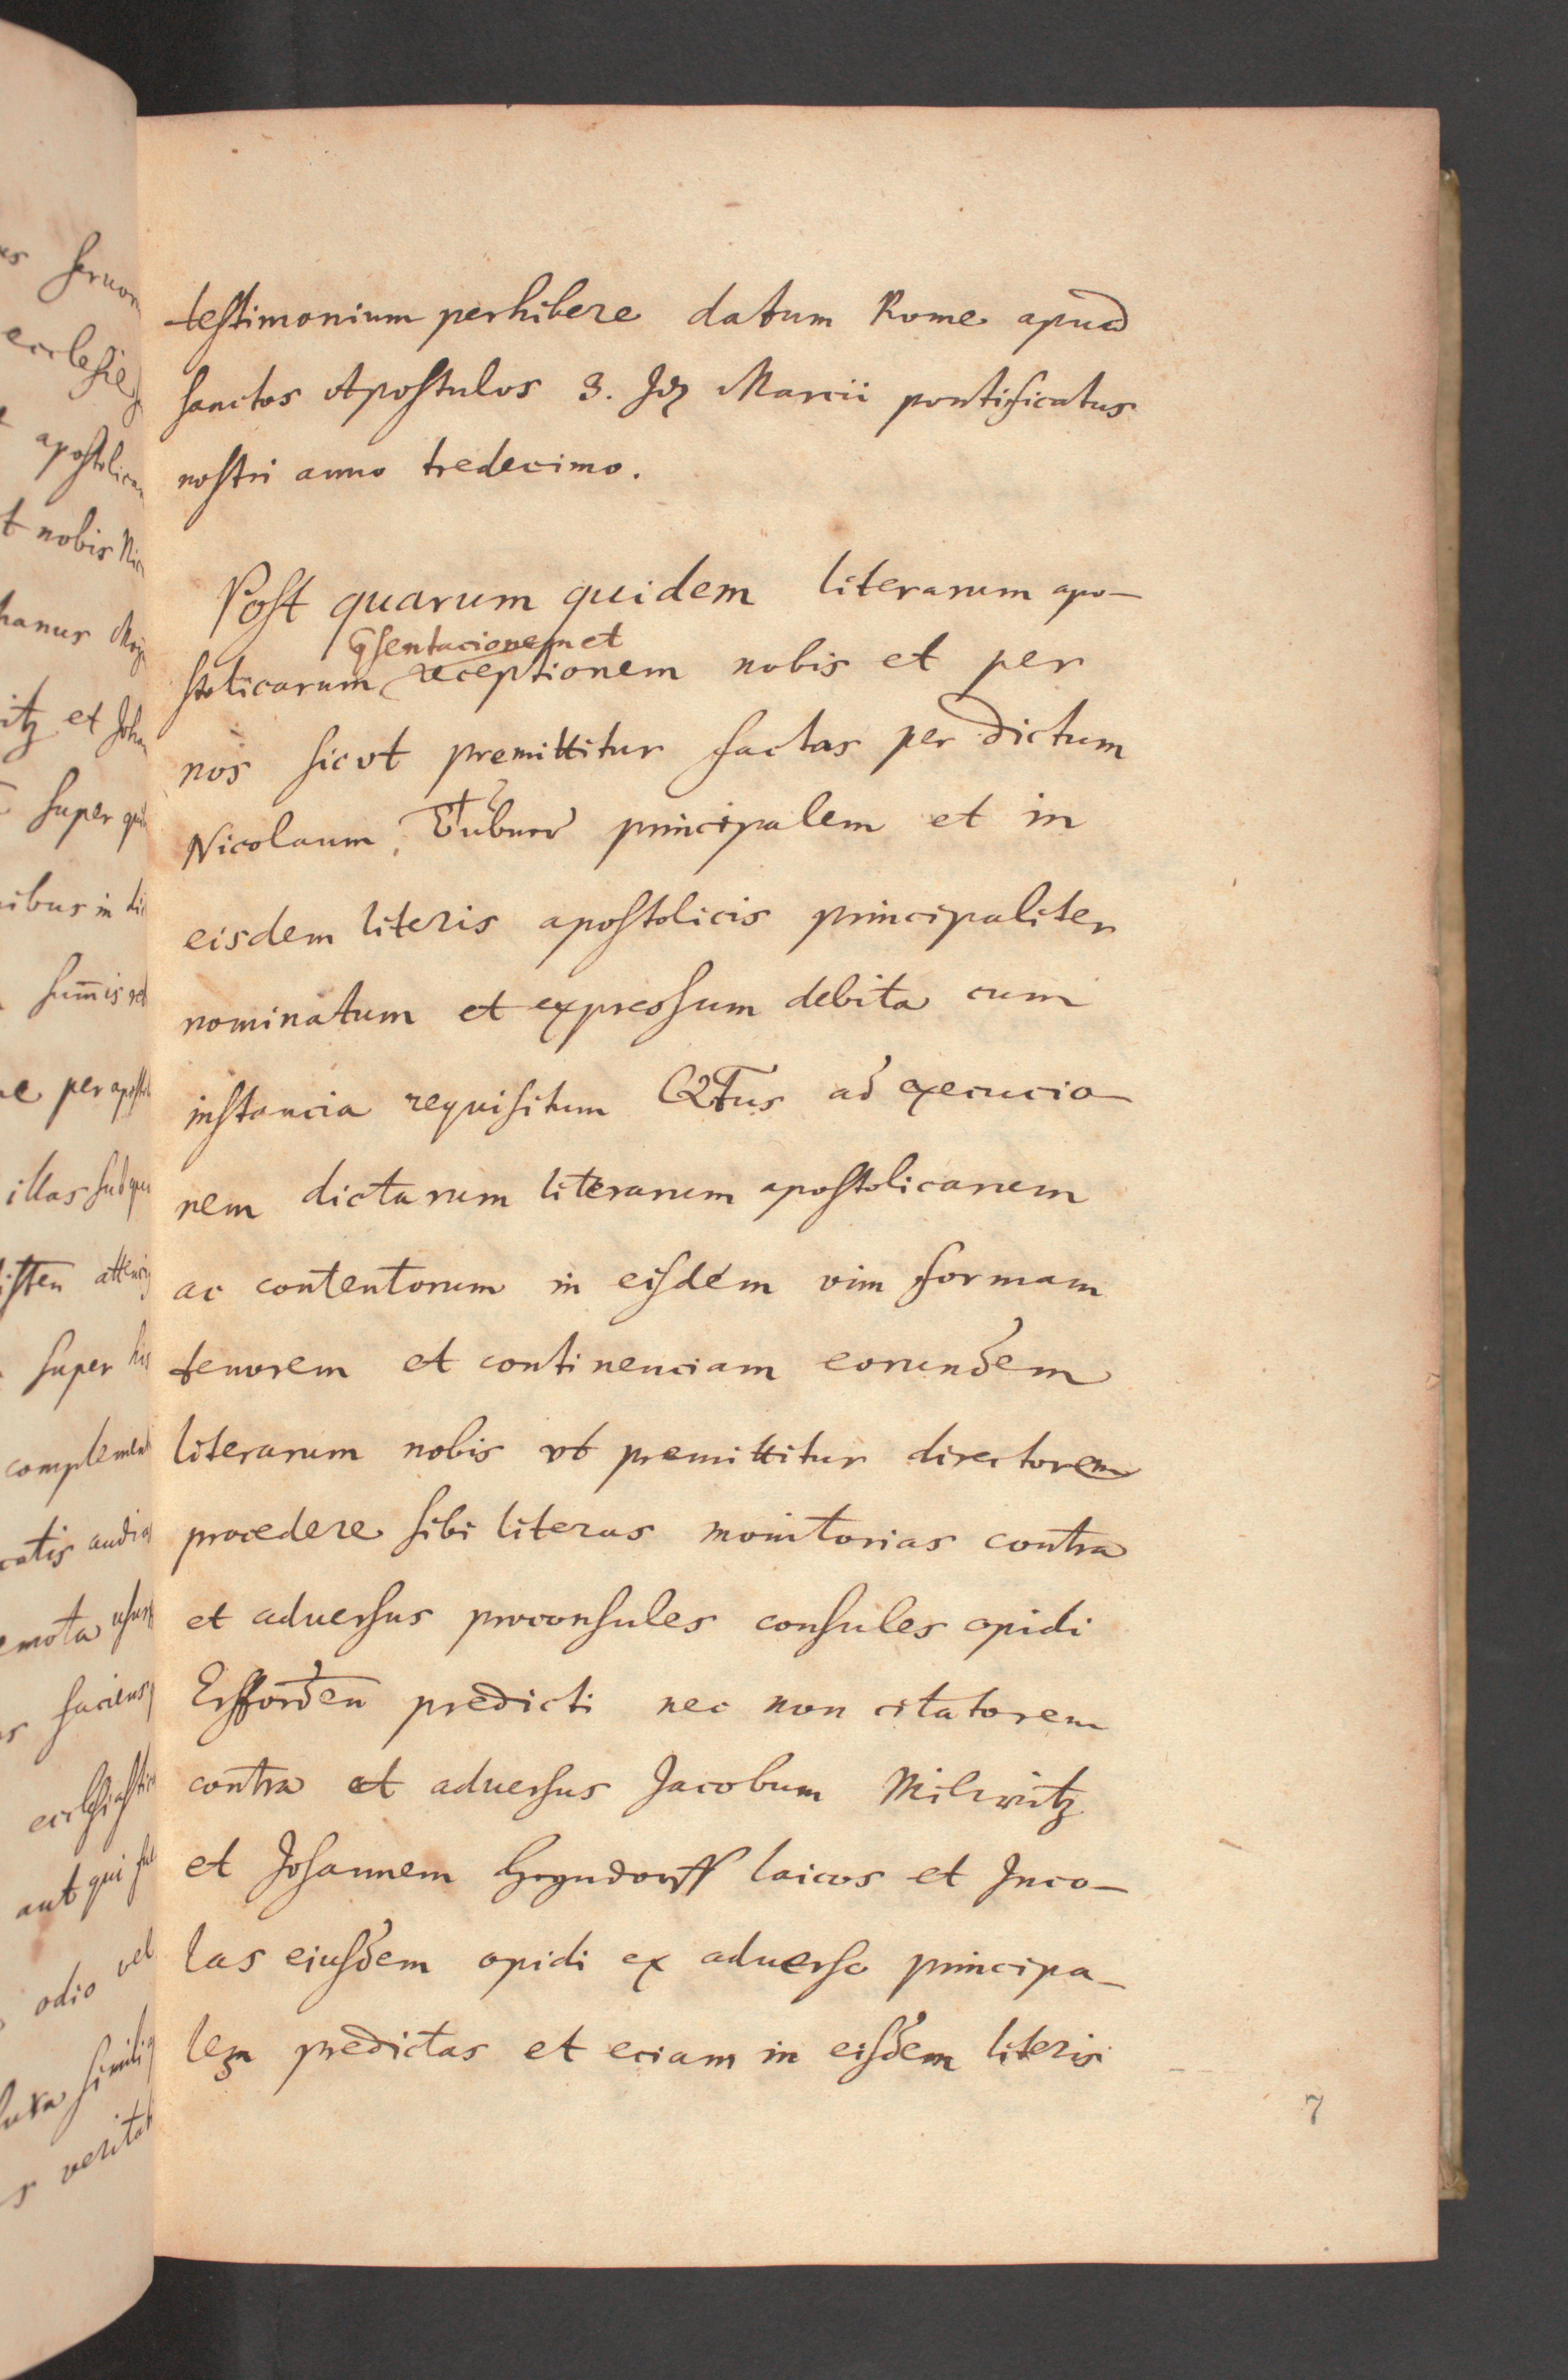 testimonium perhibere datum Rome apud
sanctos Apostulos 3. Jdz Marcii pontificatus
nostri anno tredecimo.
Post quarum quidem literarum apo-
p̄sentacionem et
stolicarum receptionem nobis et per
nos sicut premittitur factas per dictum
Nicolaum principalem et in
eisdem literis apostolicis principaliter
nominatum et expressum debita cum
instancia requisitum ad execucio-
nem dictarum literarum apostolicarum
ac contentorum in eisdem vim formam
tenorem et continenciam eorundem
literarum nobis vt premittitur directorem
procedere sibi literas monitorias contra
et aduersus proconsules consules opidi
Erfforden̄ predicti nec non citatorem
contra et aduersus Jacobum Milwitz
et Johannem Heyndorff laicos et Jnco-
las eiusdem opidi ex aduerso principa-
lem predictas et eciam in eisdem literis
7
ecclesie
apostolica
t nobis
itz et
super
ibus in
per
illas
super
complement
odio vel